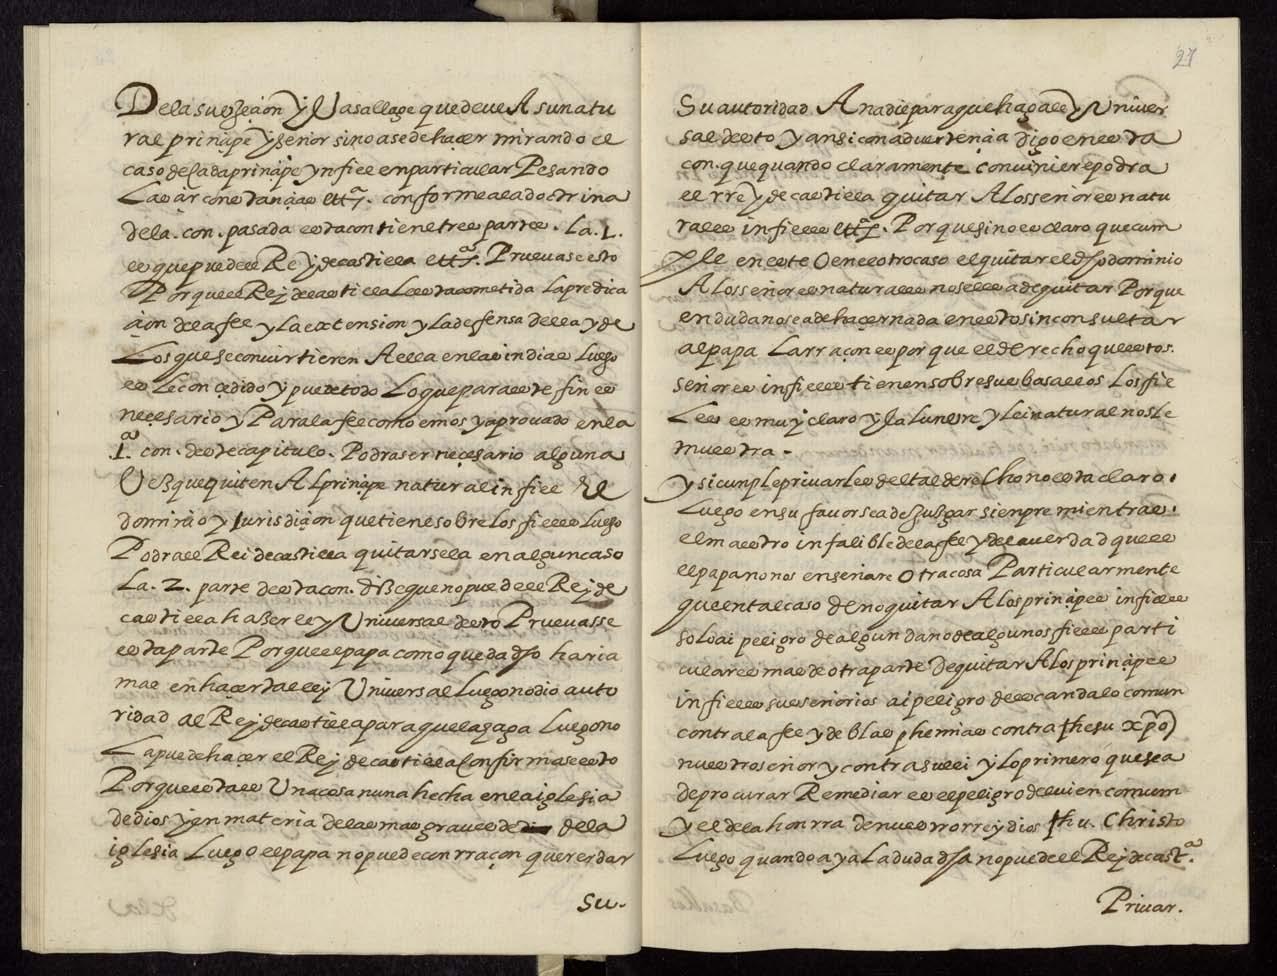 De la sugeçion y Vasallage que deue A su natu
ral prinçipe y señor sino a se de haçer mirando el
caso de Cada prinçipe ynfiel en particular Pesando
Las çirconstançias ettª. conforme a la doctrina
de la .con. pasada esta contiene tres partes. La .1.
es que puede el Rey de castilla ettª. Prueuase esto
Porque el Rey de castilla le esta cometida la predica
çion de la fee y la extension y la deffensa della y de
Los que se conuirtieren A ella en las indias Luego
es le conçedido y puede todo Lo que para este fin es
neçesario y Para la fee como emos ya prouado en la
1ª. con. deste capitulo. Podra ser neçesario alguna
Vez que quiten Al prinçipe natural infiel El
dominio y Iurisdiçion que tiene sobre los fieles luego
Podra el Rei de castilla quitarsela en algun caso
La. 2. parte de esta con. dize que no puede el Rey de
castilla hazer ley Vniuersal desto Prueuasse
esta parte Porque el papa como queda dho haria
mal en haçer tal ley Vniuersal Luego no dio auto
ridad al Rey de castilla para que la haga luego no
La puede haçer el Rey de castilla Confirmase esto
Porque esta es Vna cosa nunca hecha en la iglesia
de dios y en materia de las mas graues de la
iglesia Luego el papa no puede con rraçon querer dar
Su.
27
Su autoridad A nadie para que haga ley Vniuer
sal desto y ansi con aduertençia digo en esta
con. que quando claramente conuiniere podra
el rrey de castilla quitar A los señores natu
rales infieles ettª. Porque si no es claro que cum
ple en este O en el otro caso el quitar el dho dominio
A los señores naturales no se les a de quitar Porque
en duda no se a de haçer nada en esto sin consultar
al papa La rraçon es porque el derecho que estos.
señores infieles tienen sobre sus basallos Los fie
Les es muy claro y la lunbre y lei natural nos le
muestra -
y si cunple priuarles del tal derecho no esta claro.
Luego en su fauor se a de juzgar siempre mientras.
el maestro infalible de la fee y de la uerdad que es
el papa no nos enseñare Otra cosa Particularmente
que en tal caso de no quitar A los prinçipes infieles
solo ai peligro de algun daño de algunos fieles parti
culares mas de otra parte de quitar A los prinçipes
infieles sus señorios ai peligro de escandalo comun
contra la fee y de blasphemias contra Jhesu xpo
nuestro señor y contra su lei y lo primero que se a
de procurar Remediar es el peligro del uien comun
y el de la honrra de nuestro rrey dios Jhu. Christo
Luego quando aya La duda dha no puede el Rey de castª.
Priuar.